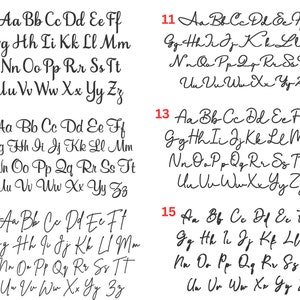 Aa Bb Cc Dd Ee Ff
Gg Hh Ii Kk Ll Mm
Nn Oo Pp Qq Rr Ss Tt
Uu Vv Ww Xx Yy Zz
11
Aa Bb Cc Dd Ee Ff
Gg Hh Ii Jj Kk Ll Mm
Nn Oo Pp Qq Rr Ss Tt
Uu Vv Ww Xx Yy Zz
Aa Bb Cc Dd Ee Ff
Gg Hh Ii Jj Kk Ll Mm
Nn Oo Pp Qq Rr Ss Tt
Uu Vv Ww Xx Yy Zz
13
Aa Bb Cc Dd Ee Ff
Gg Hh Ii Jj Kk Ll Mm
Nn Oo Pp Qq Rr Ss Tt
Uu Vv Ww Xx Yy Zz
Aa Bb Cc Dd Ee Ff
Gg Hh Ii Jj Kk Ll Mm
Nn Oo Pp Qq Rr Ss Tt
Uu Vv Ww Xx Yy Zz
15
Aa Bb Cc Dd Ee Ff
Gg Hh Ii Jj Kk Ll
Nn Oo Pp Qq Rr Ss
Uu Vv Ww Xx Yy Zz